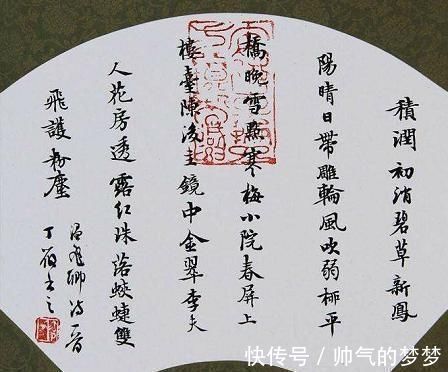 積潤初消碧草新鳳
陽晴日帶雕輪風吹弱柳平
橋晚雪點寒梅小院春屏上
樓臺陳後主鏡中金翠李夫
人花房透露紅珠落蛺蝶雙
飛護粉塵
温飛卿詩一首
快传号／帅气的梦梦